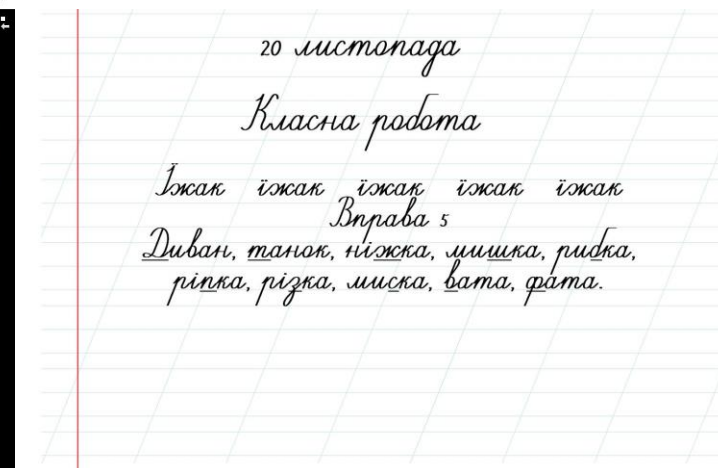 20 листопада
Класна робота
Їжак їжак їжак їжак їжак
Вправа 5
Диван, танок, ніжка, мишка, рибка,
ріпка, різка, миска, вата, фата.